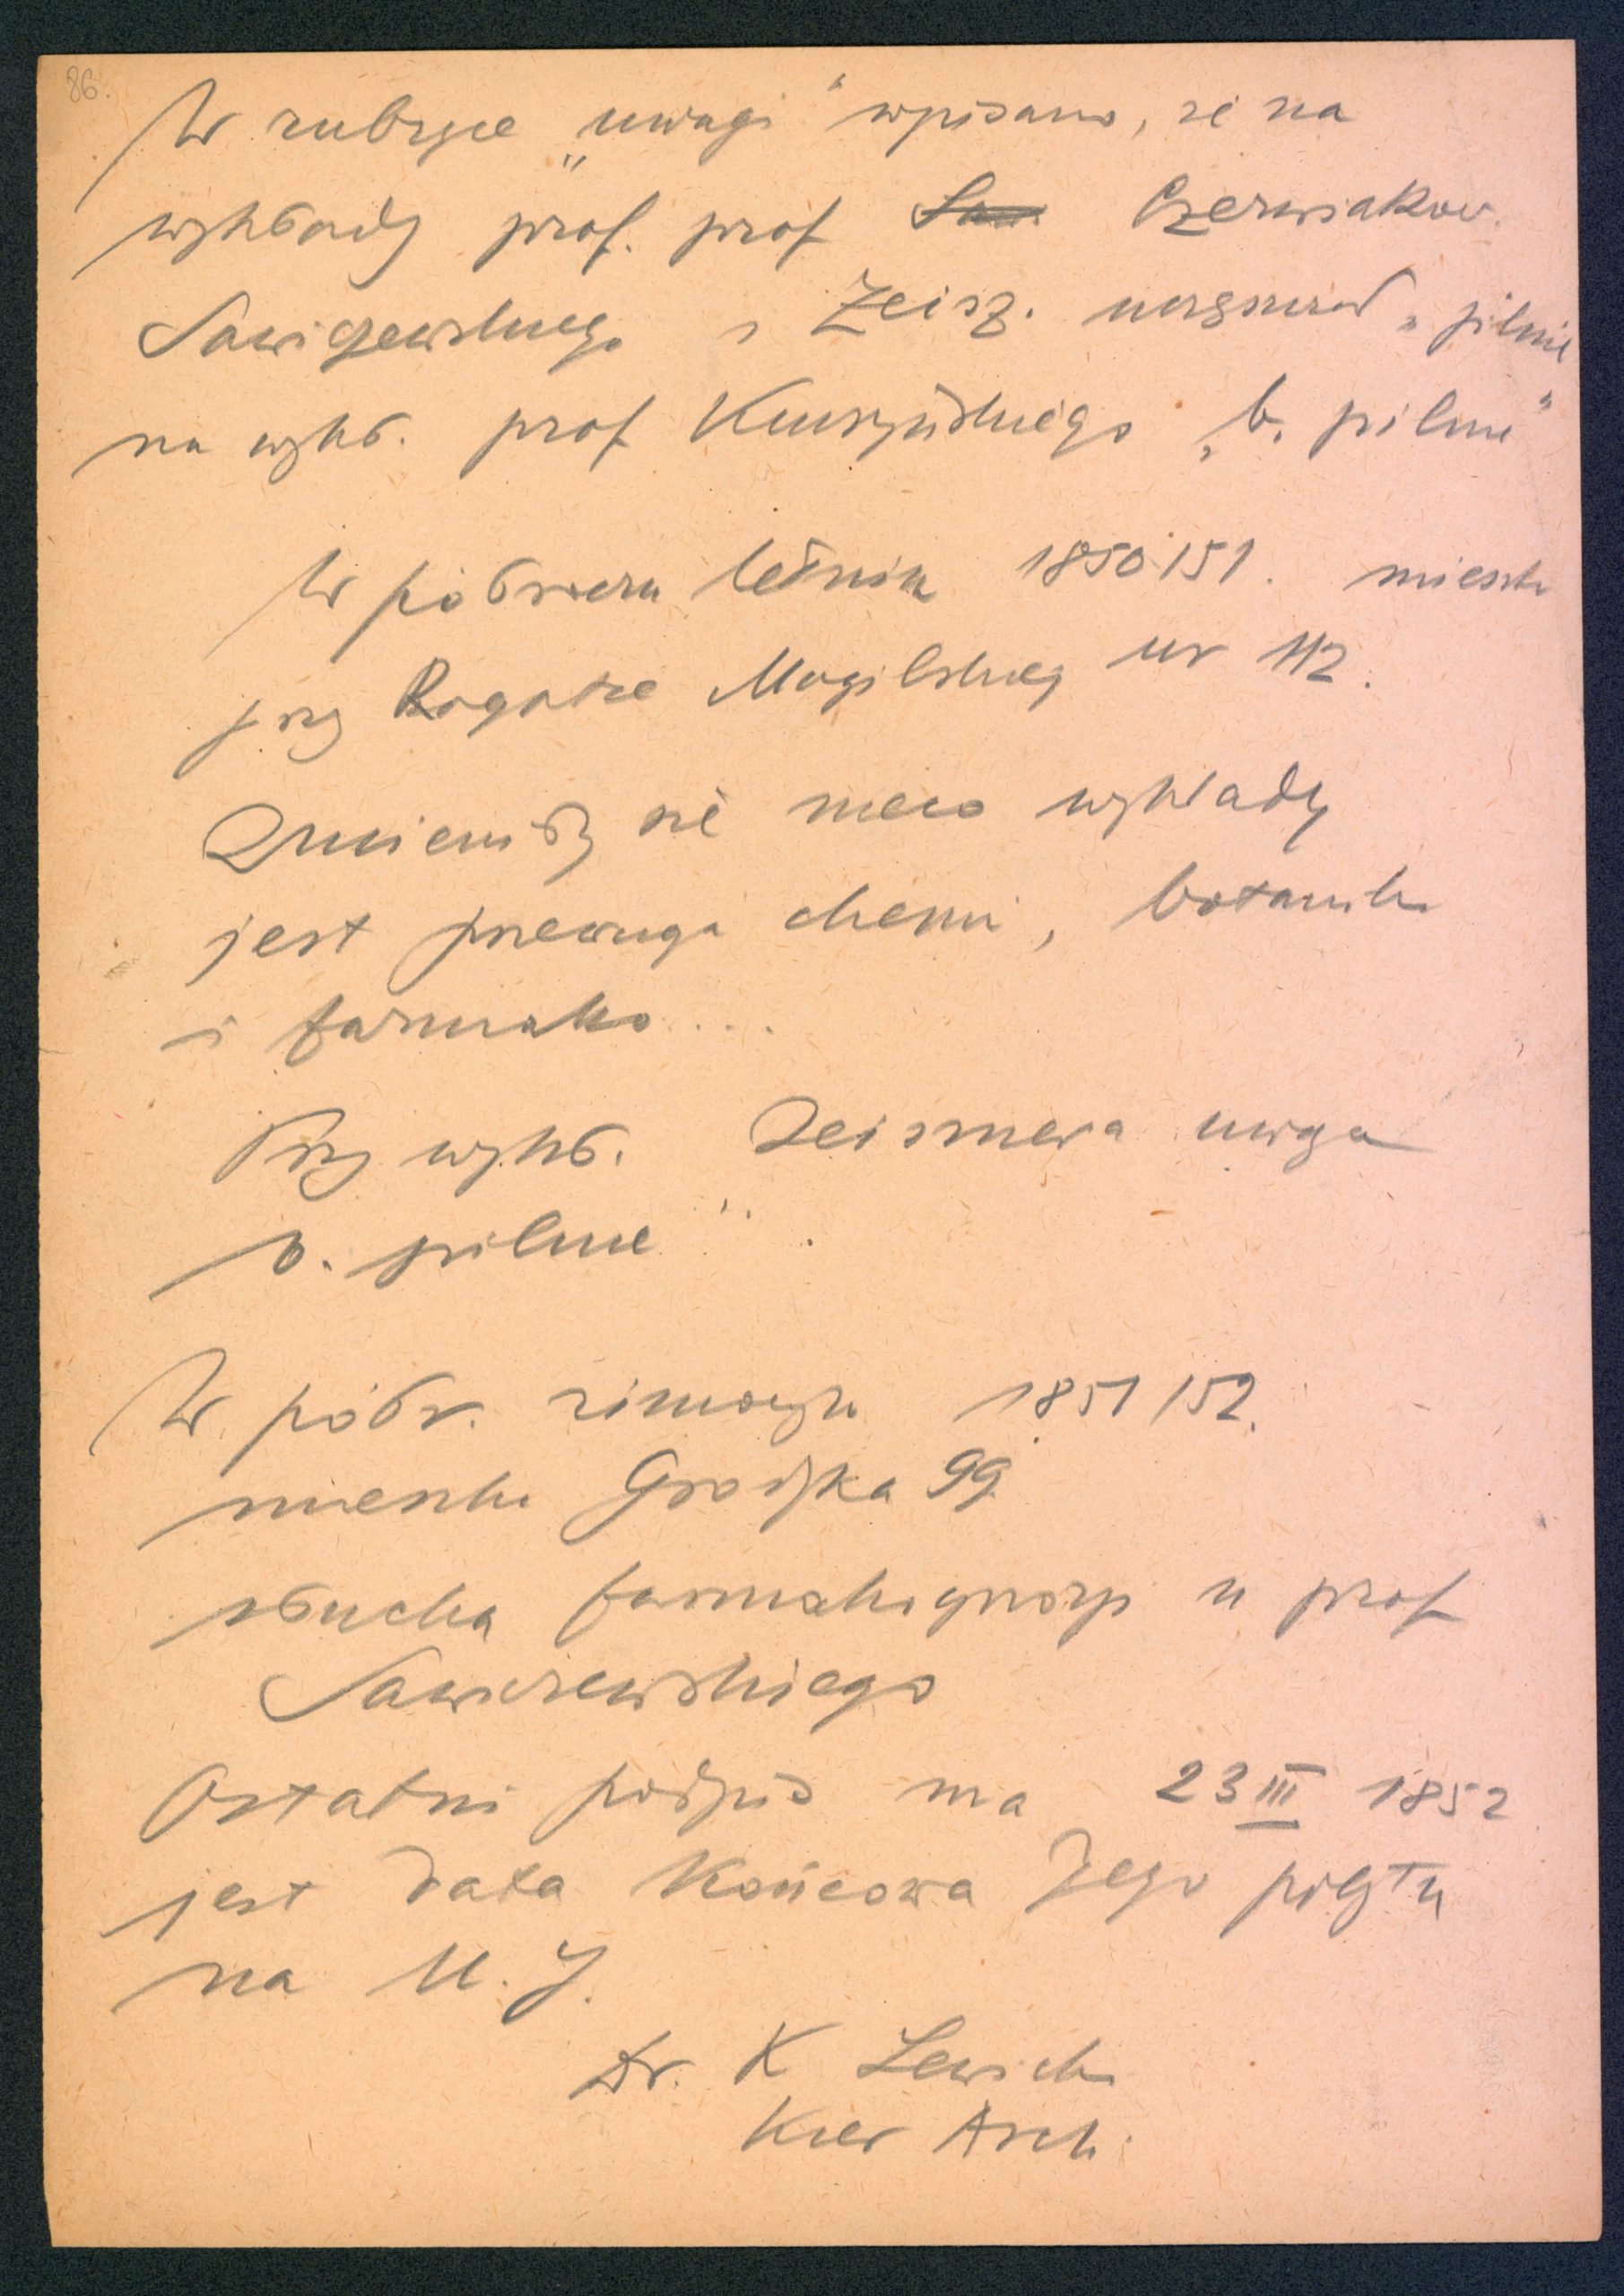 86.
W rubryce „uwagi" wpisano, że na
wykłady prof. prof Saw. Czerwiakow.
Sawiczewskiego i Zeisz. uczęszczał „pilnie
na wykł. prof Kuczyńskiego „b. pilnie"
W półroczu letnim 1850/51. mieszka
przy Rogatce Mogilskiej nr 112.
Zmieniły się nieco wykłady
jest przewaga chemii, botaniki
i farmako...
Przy wykł. Zeisznera uwaga
b. pilnie"
W półr. zimowym 1851/52.
mieszka Grodzka 99
słucha farmakognozji u prof
Sawiczewskiego
Ostatni podpis ma 23 III 1852
jest data końcowa Jego pobytu
na U. J.
Dr. K Lewicki
Kier Arch.